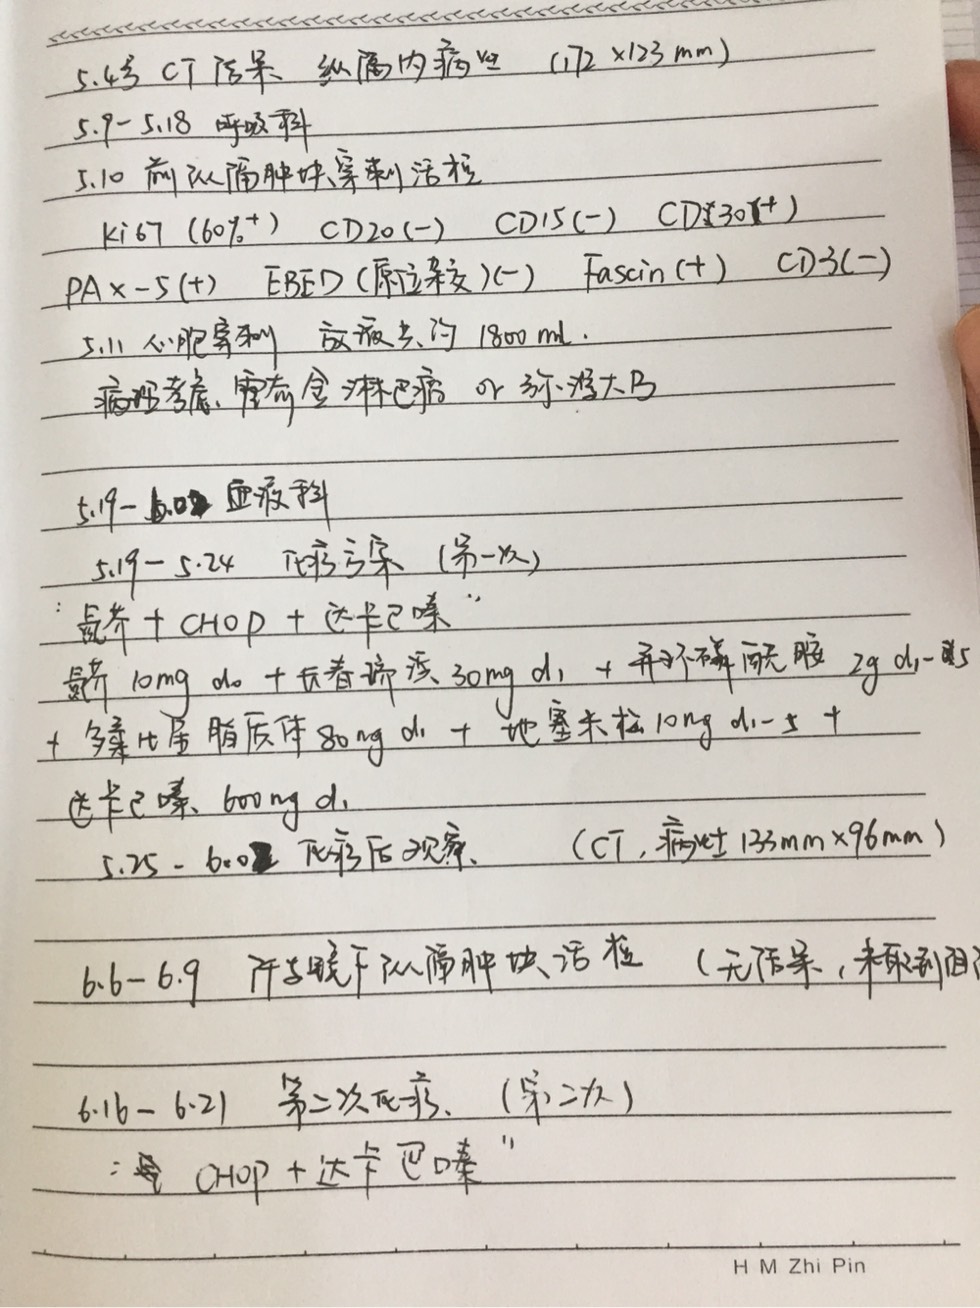 5.4号 CT 结果 纵隔内病灶 (172×123mm)
5.9-5.18 呼吸科
5.10 前纵隔肿块穿刺活检
Ki67 (60%+) CD20(-) CD15(-) CD30(+)
PAX-5(+) EBED(原位杂交)(-) Fascin(+) CD3(-)
5.11 心胞穿刺 放液共约1800ml.
病理考虑、霍奇金淋巴瘤 or 弥漫大B
5.19-6.02 血液科
5.19-5.24 化疗方案 (第一次)
"氮芥+CHOP+达卡巴嗪"
氮芥10mg d0 +长春新碱 30mg d1 + 异环磷酰胺 2g d1-5
+ 多柔比星脂质体80mg d1 + 地塞米松10mg d1-5 +
达卡巴嗪、600mg d1
5.25-6.02 化疗后观察、 (CT,病灶133mm×96mm)
6.6-6.9 纵隔肿块、活检 (无结果,未取到
6.16-6.21 第二次化疗、(第二次)
" CHOP+达卡巴嗪"
H M Zhi Pin